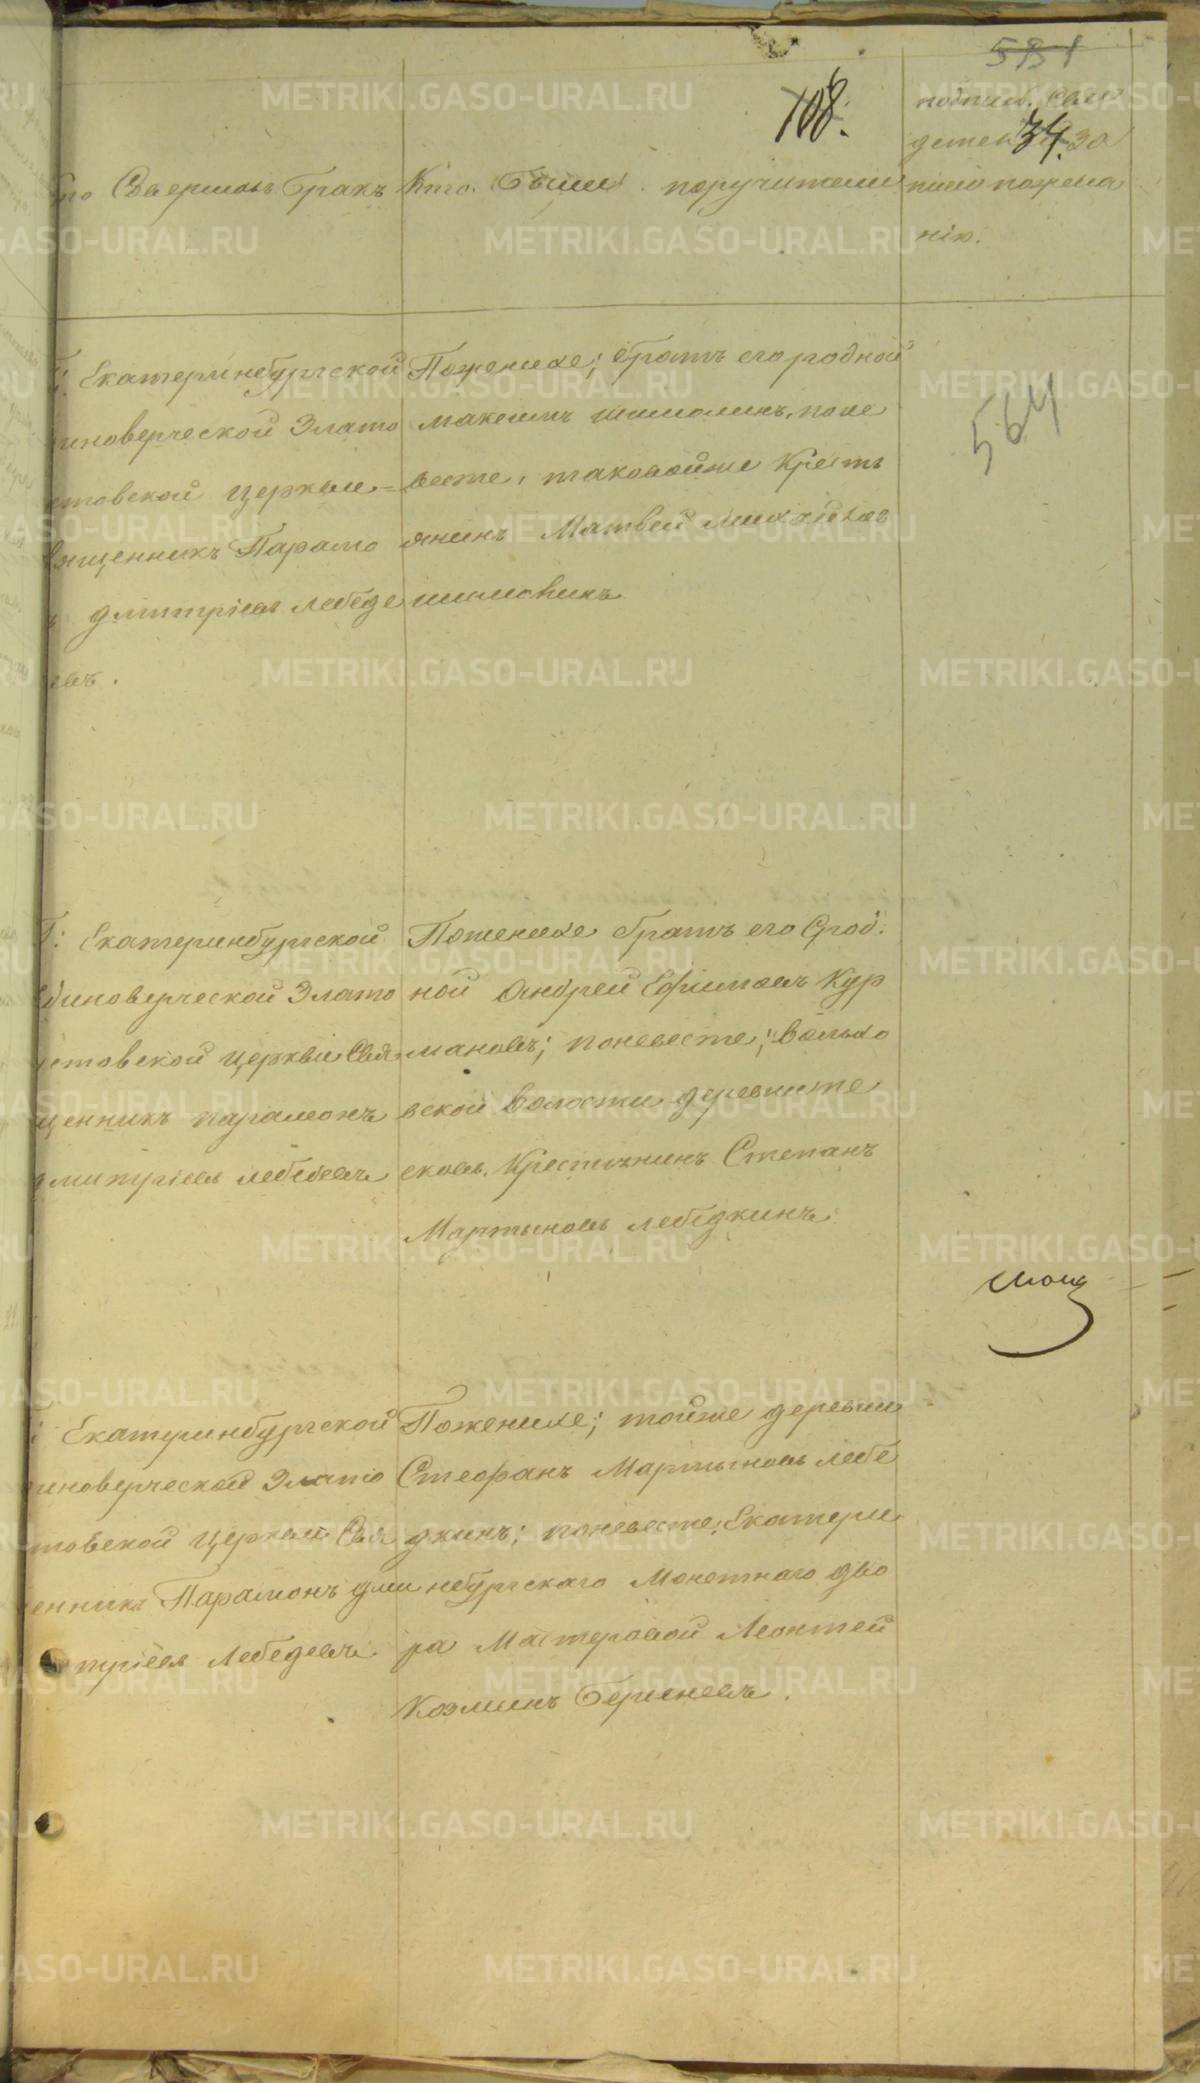 531
108.
34.
подпис. Свид
детел за
писи пожела
нію.
то Совершалъ Бракъ
Кто Были поручители
Г: Екатеринбургской
иноверческой Злато
стовской церкви
вященникъ Парамо
ъ Дмитріевъ Лебеде
евъ.
Поженихе; братъ его родной
Максимъ поне
весте, таковойже Кресть
янинъ Матвей Михайлов
564
Г: Екатеринбургской
диноверческой Злато
устовской церкви Свя
щенникъ Парамонъ
дмитріевъ Лебедевъ
Поженихе братъ его Срод.
ной Андрей Ефимовъ Кур
мановъ; поневесте;
вской волости деревни
Крестьянинъ Степанъ
Мартыновъ Лебедкинъ.
Екатеринбургской
иноверческой Злато
товской Церкви Свя
енникъ Парамонъ Дми
тріевъ Лебедевъ
Поженихе; тойже деревни
Стефанъ Мартыновъ Лебе
дкинъ; поневесте; Екатери
небургскаго Монетнаго дво
ра Мастеровой Леонтей
Козминъ Берсеневъ.
METRIKI.GASO-URAL.RU